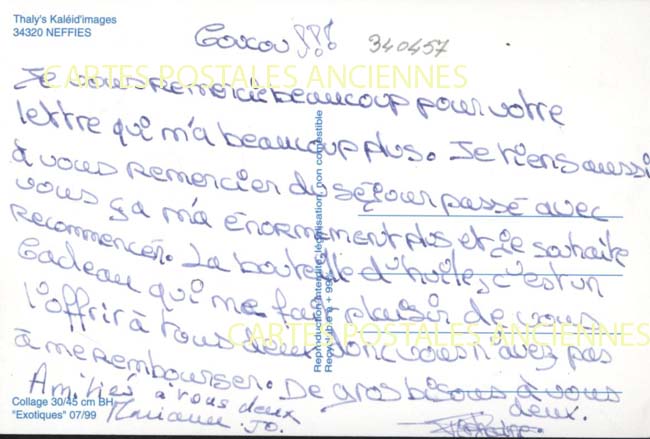 Thaly's Kaléid'images
34320 NEFFIES
Coucou !!! 340457
CARTES POSTALES ANCIENNES
Je vous remercie beaucoup pour votre
lettre qui m'a beaucoup plus. Je tiens aussi
à vous remercier du séjour passé avec
vous ça m'a énormement plus et je souhaite
recommencer. La bouteille d'huile, c'est un
cadeau qui me fait plaisir de vous
l'offrir à tous deux donc vous n'avez pas
CARTES POSTALES ANCIENNES
à me rembourser. De gros bisous à vous
deux.
Amitiés à vous deux
Marianne. JO.
Collage 30/45 cm BH
"Exotiques" 07/99
Reproduction interdite, légalisation, non comestible